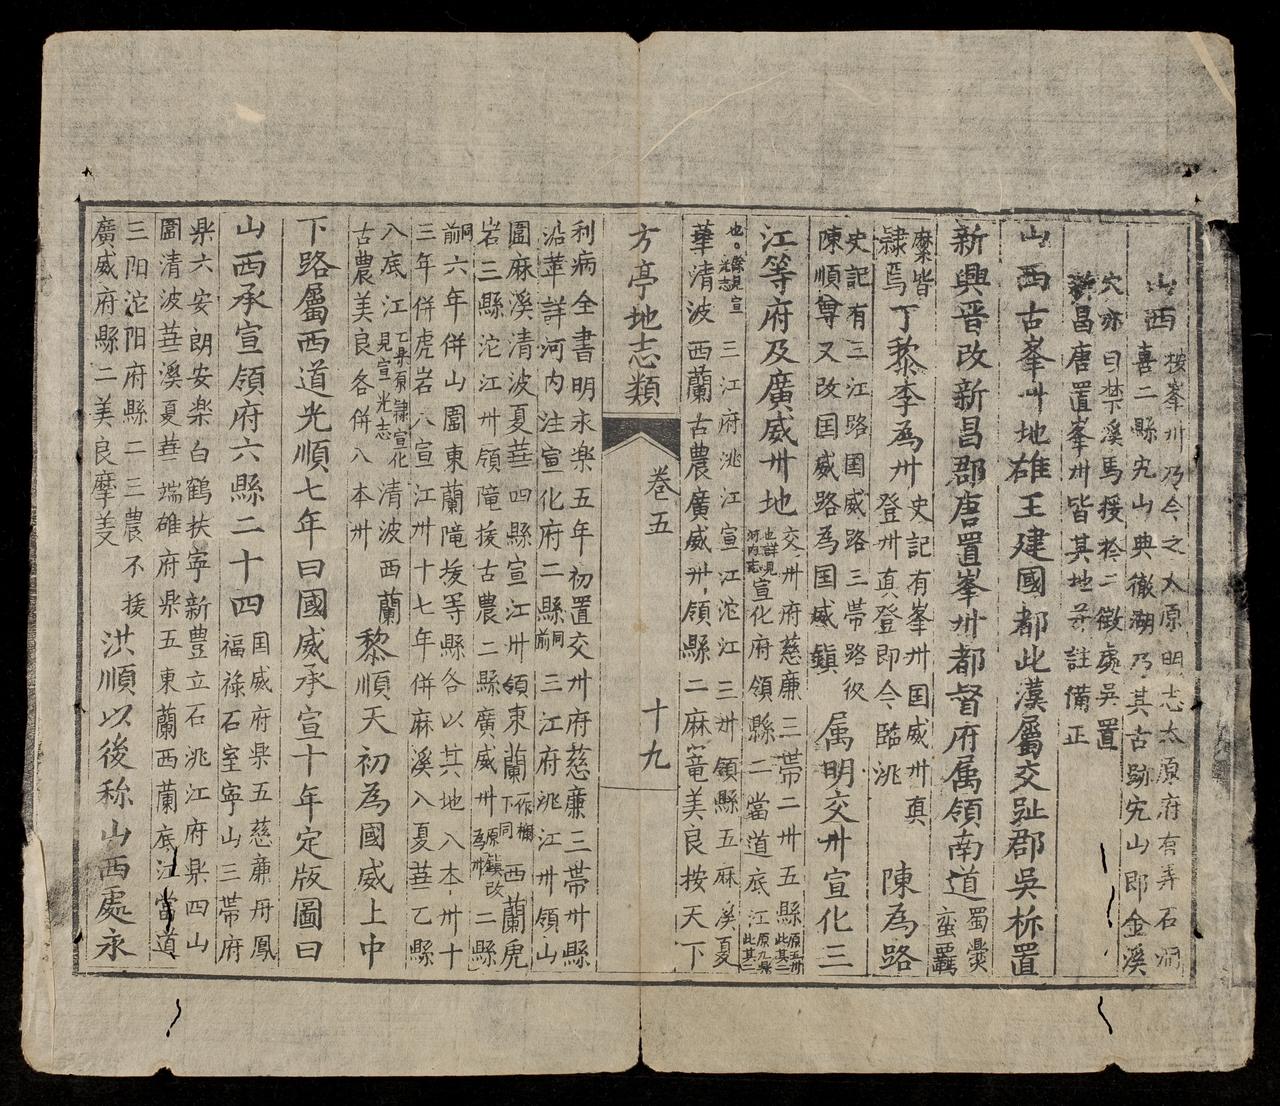 山西
按峯卅乃今之太原明志太原府有弄石洞
喜二縣宄山典徹湖乃其古跡宄山即金溪
穴亦曰禁溪馬援於二徵處吳置
新昌唐置峯卅皆其地并註備正
山西古峯卅地雄王建國都此漢屬交趾郡吳柝置
新興晋改新昌郡唐置峯卅都督府属領南道
蜀爨
蠻羈
縻皆
隸焉
丁黎李為卅
史記有峯卅囯威卅真
登卅真登即今臨洮
陳為路
史記有三江路囯威路三帶路後
陳順尊又改囯威路為囯威鎮
属明交卅宣化三
江等府及廣威卅地
交卅府慈廉三帶二卅五縣
原五卅
此其二
也詳見
河內志
宣化府領縣二當道底江
原九縣
此其二
也。餘見宣
光志
三江府洮江宣江沱江三卅領縣五麻溪夏
華清波西蘭古農廣威卅領縣二麻篭美良按天下
方亭地志類
卷五
十九
利病全書明永楽五年初置交卅府慈廉三帶卅縣
沿革詳河內注宣化府二縣
同
前
三江府洮江卅領山
圍麻溪清波夏華四縣宣江卅領東蘭
一作欄
下同
西蘭虎
岩三縣沱江卅領隴拔古農二縣廣威卅
原鎮改
為卅
二縣
同
前
六年併山圍東蘭隴拔等縣各以其地入本卅十
三年併虎岩入宣江卅十七年併麻溪入夏華乙縣
入底江
乙平原隸宣化
見宣光志
清波西蘭
古農美良各併入本卅
黎順天初為國威上中
下路屬西道光順七年曰國威承宣十年定版圖曰
山西承宣領府六縣二十四
囯威府県五慈廉丹鳳
福祿石室寜山三帶府
県六安朗安楽白鶴扶寜新豊立石洮江府県四山
圍清波華溪夏華端雄府県五東蘭西蘭底江當道
三阳沱阳府縣二三農不拔
廣威府縣二美良摩美
洪順以後称山西處永